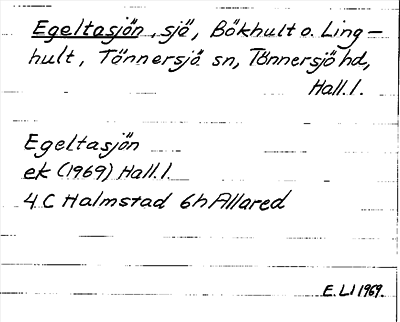 Egeltasjön, sjö, Bökhult o. Ling-
hult, Tönnersjö sn, Tönnersjö hd,
Hall. l.
Egeltasjön
ek (1969) Hall. l.
4 C Halmstad 6h Allared
E. L. l 1969.